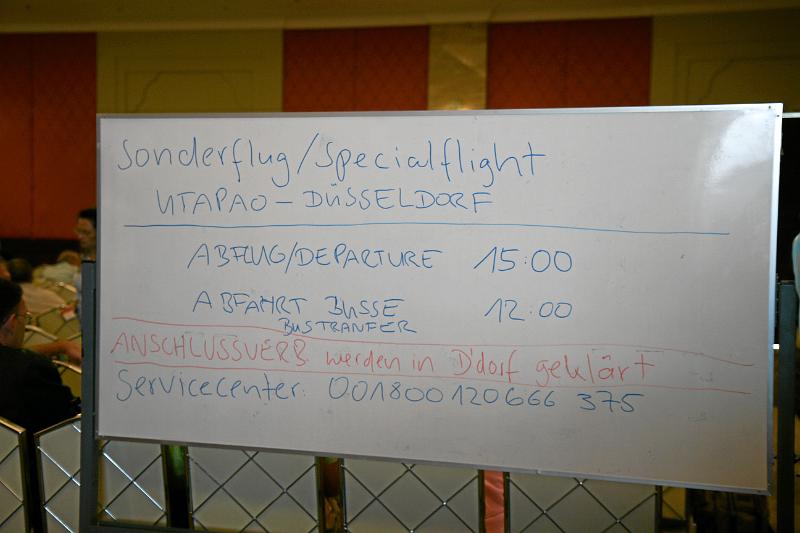 Sonderflug/Specialflight
UTAPAO – DÜSSELDORF
ABFLUG/DEPARTURE 15:00
ABFAHRT BUSSE 12:00
BUSTRANFER
ANSCHLUSSVERB werden in D'dorf geklärt
Servicecenter: 001800 120666 375